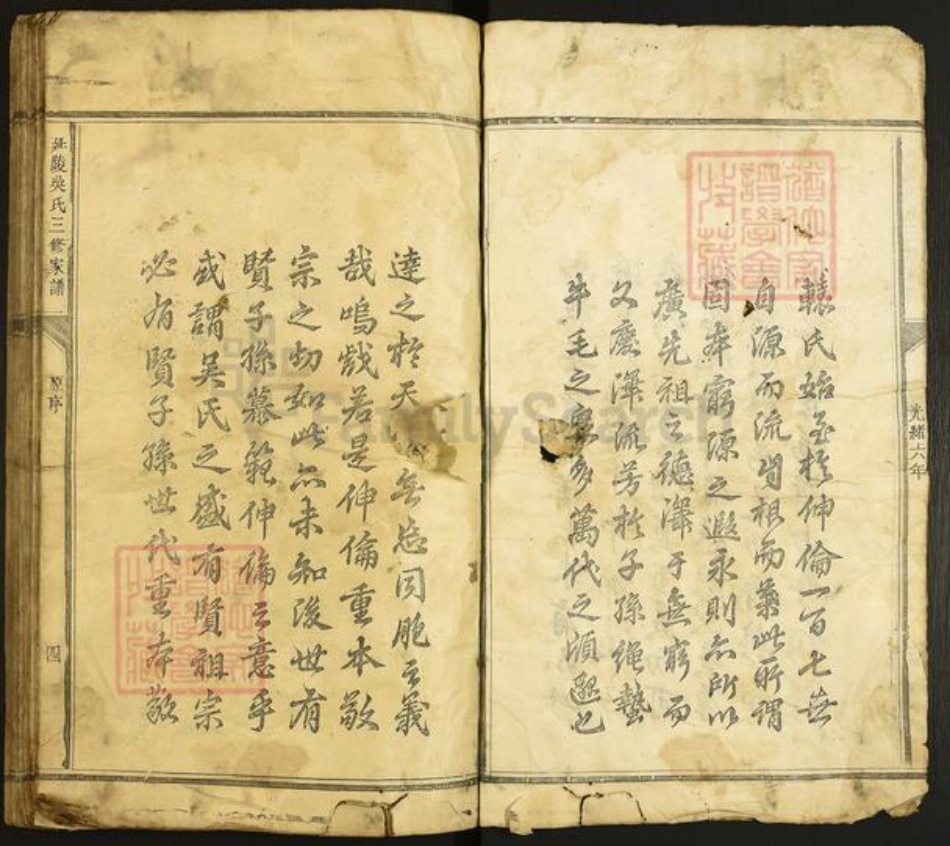 光緒六年
轅氏始至於伸倫一百七世
自源而流自根而葉此所謂
固本窮源之遐永則亦所以
廣先祖之德澤于無窮而
久慶澤流芳於子孫繩蟄
年毛之衆多萬代之須
達之於天無忘同胞之義
哉嗚戲若是伸倫重本敬
宗之切如此亦未知後世有
賢子孫慕範伸倫之意乎
或謂吳氏之盛有賢祖宗
必有賢子孫世代重本敬
延陵吳氏三修家譜
原序
四
FamilySearch